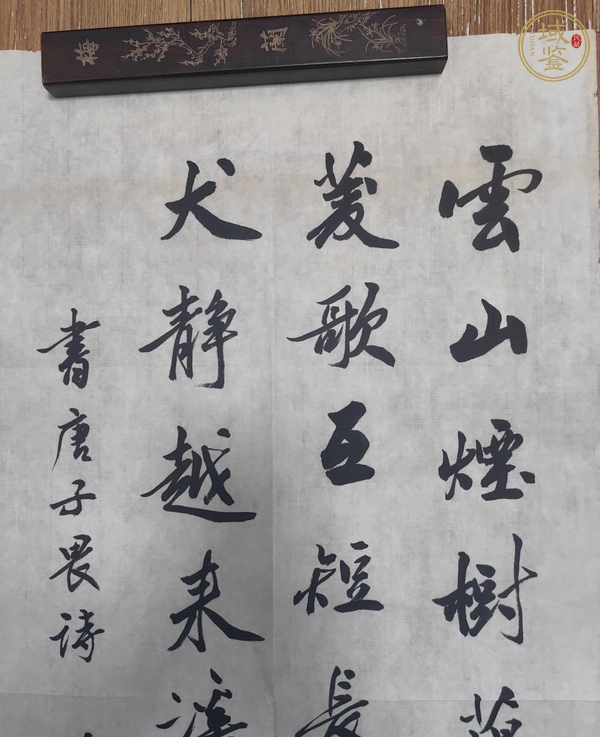 雲山煙樹
菱歌互短長
犬靜越来溪
書唐子畏詩
蘭
梅
域鉴